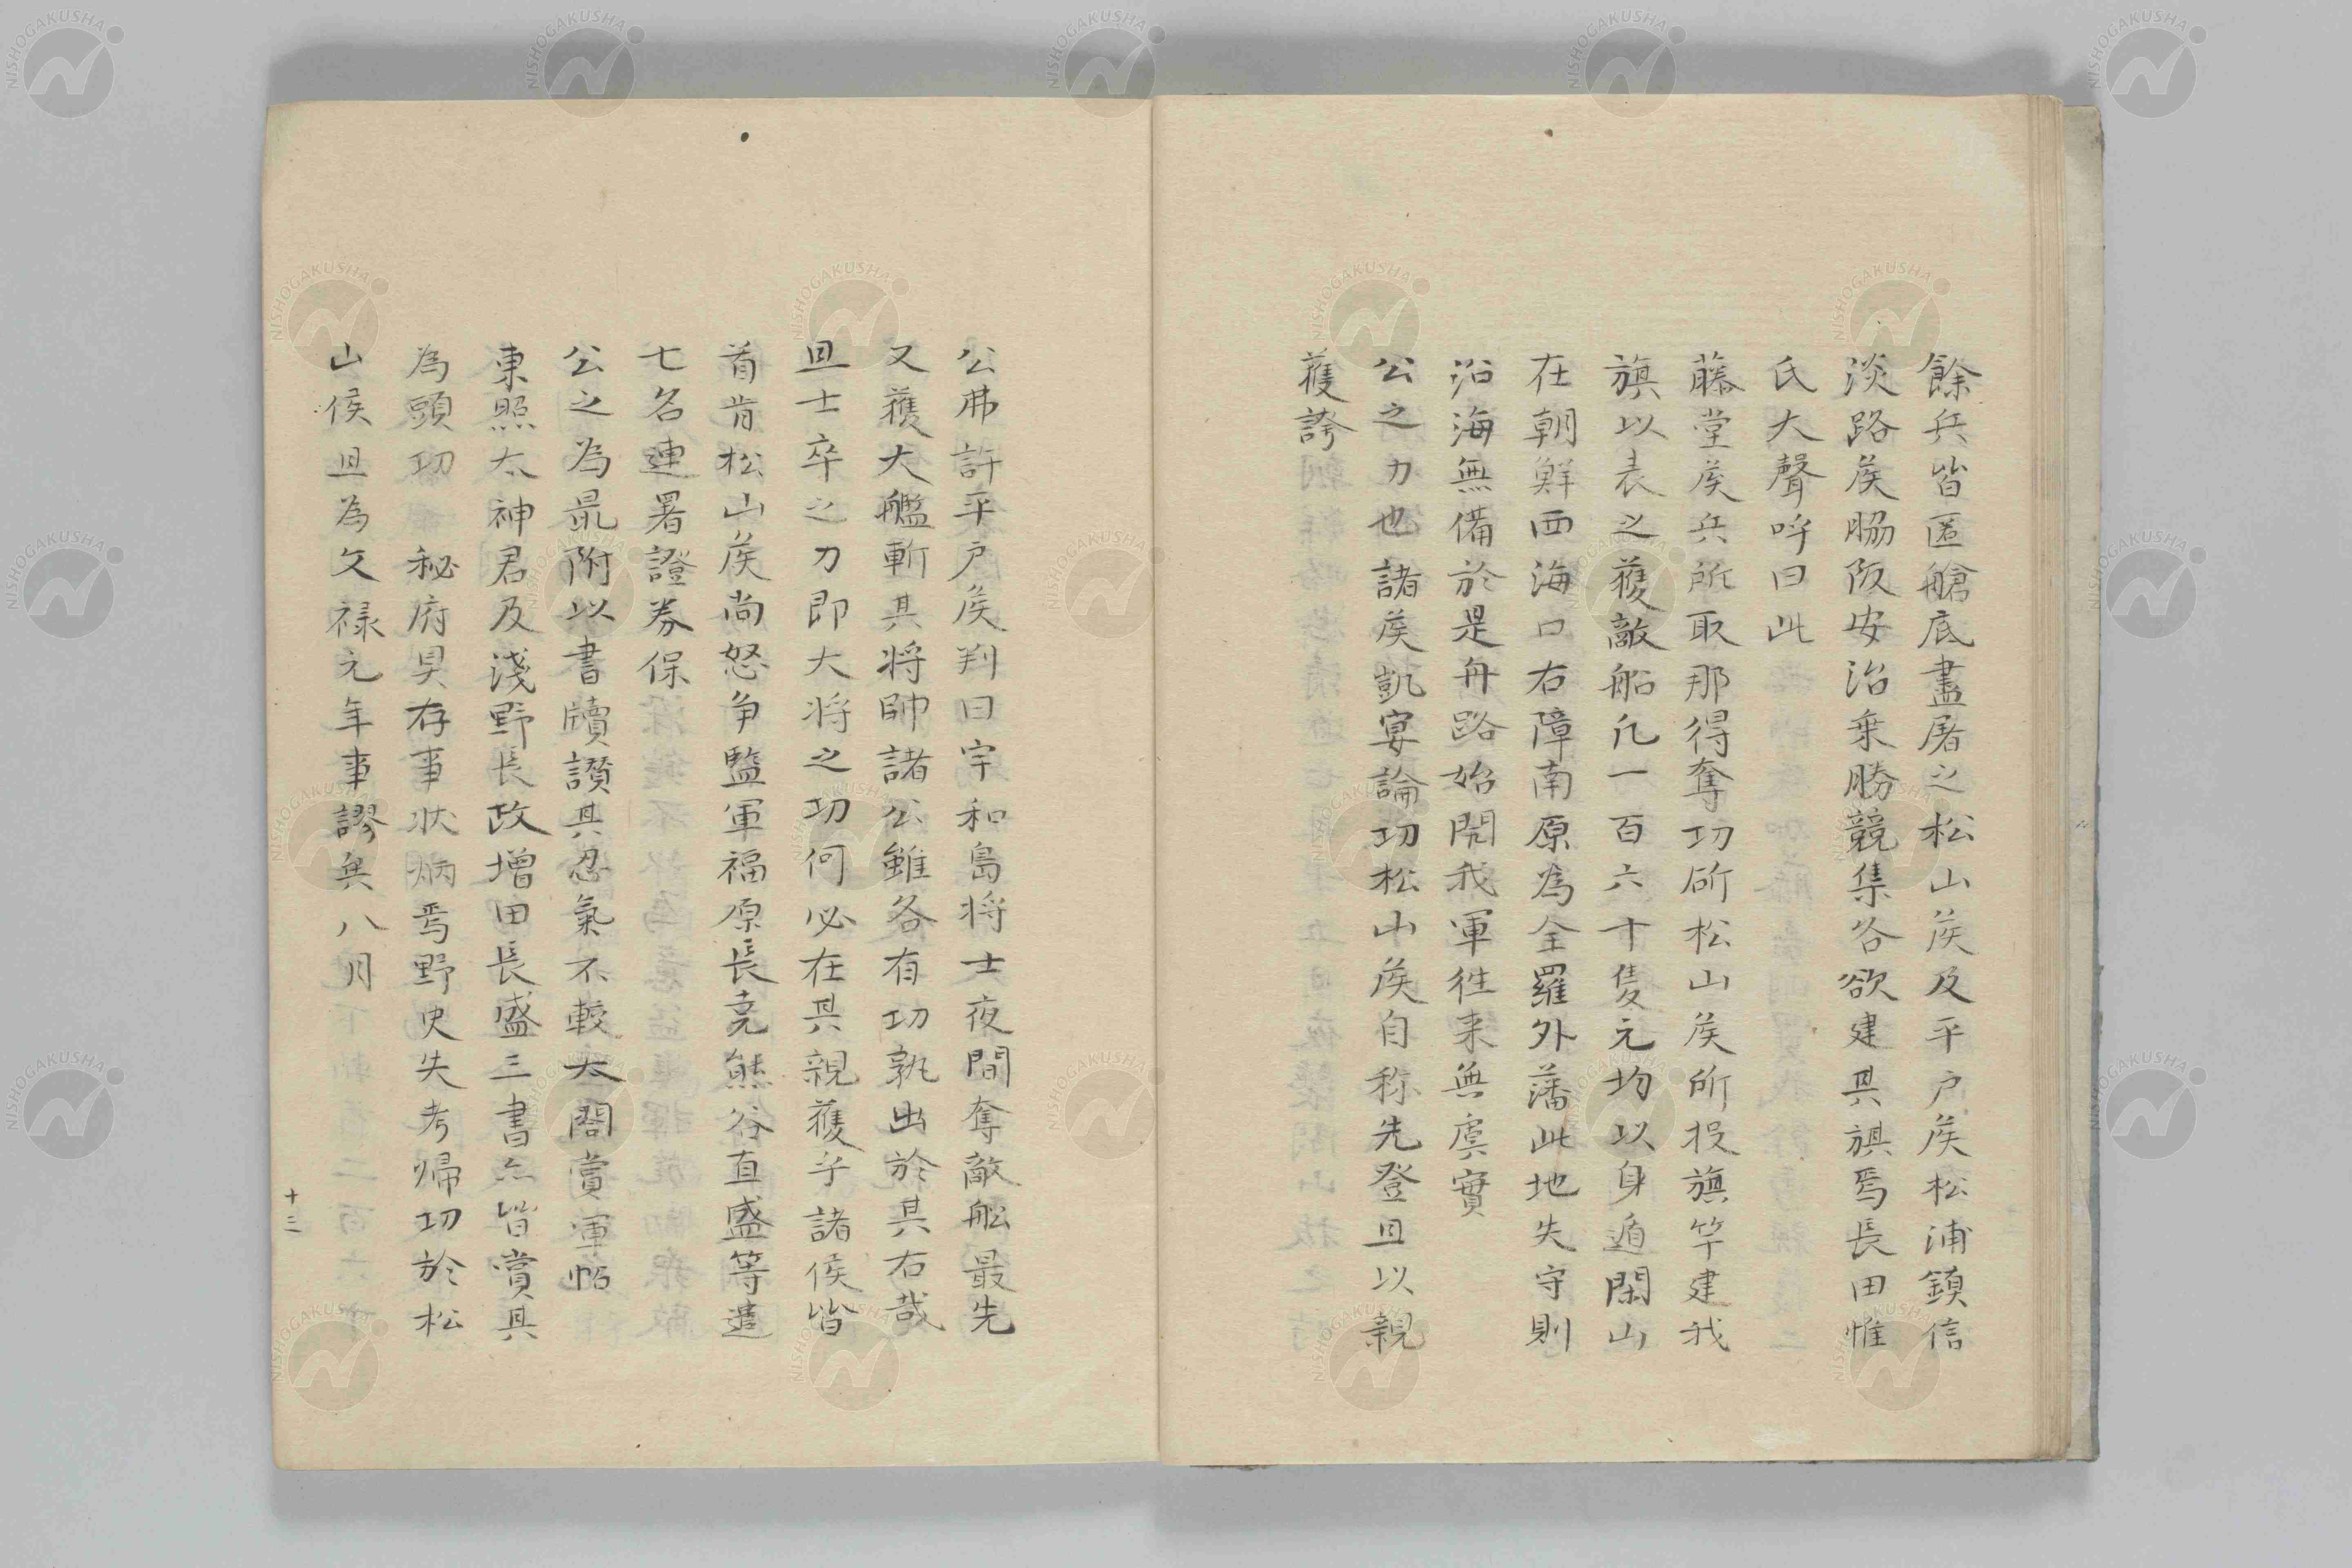 餘兵皆匿艙底盡屠之松山侯及平户侯松浦鎮信
淡路侯脇阪安治乗勝競集各欲建其旗焉長田惟
氏大聲呼曰此
藤堂侯兵所取那得奪功斫松山侯所投旗竿建我
旗以表之獲敵船凡一百六十隻元均以身遁閑山
在朝鮮西海口右障南原為全羅外藩此地失守則
沿海無備於是舟路始開我軍徃来無虞實
公之力也諸侯凱宴論功松山侯自称先登且以親
獲誇
公弗許平户侯判曰宇和島将士夜間奪敵舩最先
又獲大艦斬其将帥諸公雖各有功孰出於其右哉
且士卒之力即大将之功何必在其親獲乎諸侯皆
首肯松山侯尚怒争監軍福原長堯熊谷直盛等遣
七名連署證券保
公之為最附以書牘讃其忍氣不較太閤賞軍帖
東照大神君及淺野長政増田長盛三書亦皆賞其
為頭功 秘府具存事状炳焉野史失考帰功於松
山侯且為文禄元年事謬矣八月
十三
NISHOGAKUSHA